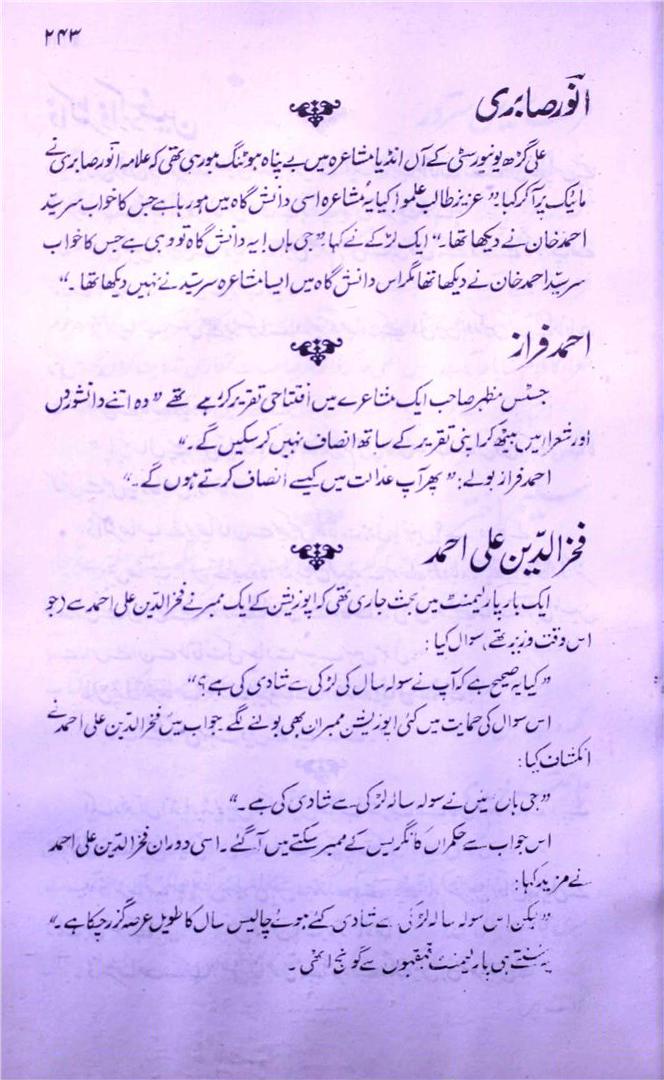 ۲۴۳
انور صابری
علی گڑھ یونیورسٹی کے آل انڈیا مشاعرہ میں بے پناہ ہوٹنگ ہو رہی تھی کہ علامہ انور صابری نے
مائیک پر آکر کہا "عزیز طالب علمو! کیا یہ مشاعرہ اسی دانش گاہ میں ہو رہا ہے جس کا خواب سرسید
احمد خان نے دیکھا تھا۔" ایک لڑکے نے کہا "جی ہاں! یہ دانش گاہ تو وہی ہے جس کا خواب
سرسید احمد خان نے دیکھا تھا مگر اس دانش گاہ میں ایسا مشاعرہ سرسید نے نہیں دیکھا تھا۔"
احمد فراز
جسٹس مظہر صاحب ایک مشاعرے میں افتتاحی تقریر کر رہے تھے "وہ اتنے دانشوروں
اور شعرار میں بیٹھ کر اپنی تقریر کے ساتھ انصاف نہیں کر سکیں گے۔"
احمد فراز بولے: "پھر آپ عدالت میں کیسے انصاف کرتے ہوں گے۔"
فخرالدین علی احمد
ایک بار پارلیمنٹ میں بحث جاری تھی کہ اپوزیشن کے ایک ممبر نے فخرالدین علی احمد سے (جو
اس وقت وزیر تھے، سوال کیا:
"کیا یہ صحیح ہے کہ آپ نے سولہ سال کی لڑکی سے شادی کی ہے؟"
اس سوال کی حمایت میں کئی اپوزیشن ممبران بھی بولنے لگے جواب میں فخرالدین علی احمد نے
انکشاف کیا:
"جی ہاں میں نے سولہ سالہ لڑکی سے شادی کی ہے۔"
اس جواب سے حکمراں کانگریس کے ممبر سکتے میں آگئے۔ اسی دوران فخرالدین علی احمد
نے مزید کہا:
"لیکن اس سولہ سالہ لڑکی سے شادی کئے ہوئے چالیس سال کا طویل عرصہ گزر چکا ہے۔"
یہ سنتے ہی پارلیمنٹ قہقہوں سے گونج اٹھی۔